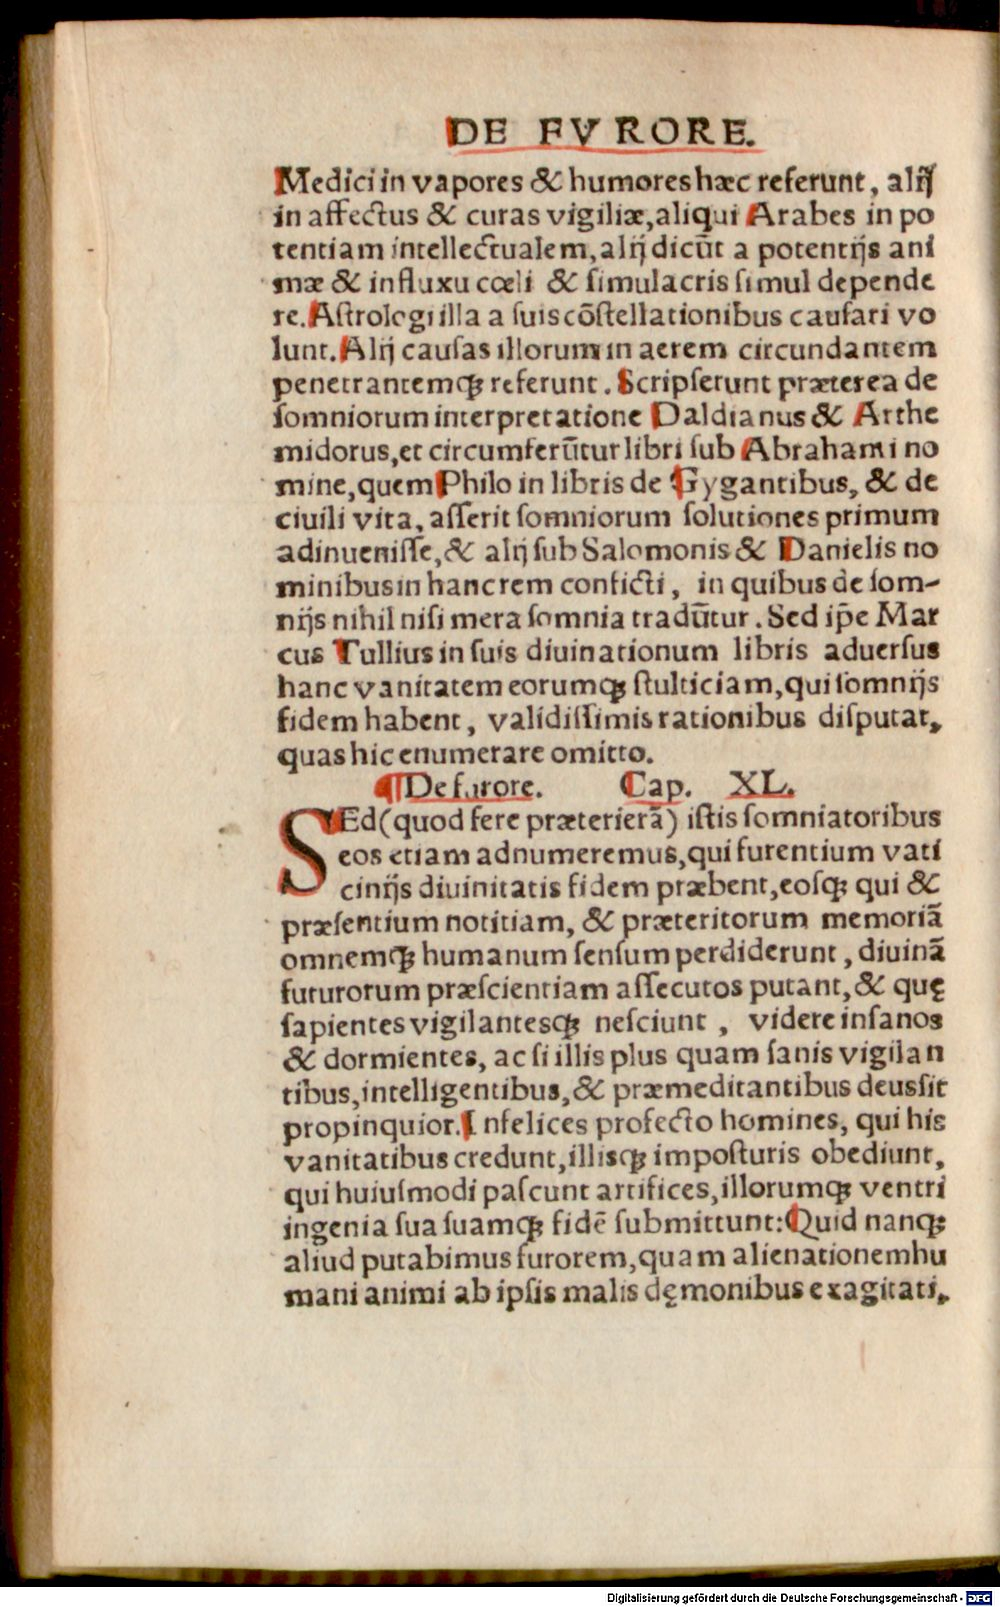 DE FVRORE.
Medici in vapores & humores hæc referunt, alij
in affectus & curas vigiliæ, aliqui Arabes in po
tentiam intellectualem, alij dicūt a potentijs ani
mæ & influxu cœli & ſimulacris ſimul depende
re. Aſtrologi illa a ſuis cōſtellationibus cauſari vo
lunt. Alij cauſas illorum in aerem circundantem
penetrantemqꝫ referunt. Scripſerunt præterea de
ſomniorum interpretatione Daldianus & Arthe
midorus, et circumferūtur libri ſub Abrahami no
mine, quem Philo in libris de Gygantibus, & de
ciuili vita, aſſerit ſomniorum ſolutiones primum
adinueniſſe, & alij ſub Salomonis & Danielis no
minibus in hanc rem conficti, in quibus de ſom-
nijs nihil niſi mera ſomnia tradūtur. Sed ip̄e Mar
cus Tullius in ſuis diuinationum libris aduerſus
hanc vanitatem eorumqꝫ ſtulticiam, qui ſomnijs
fidem habent, validiſſimis rationibus diſputat,
quas hic enumerare omitto.
¶ De furore. Cap. XL.
SEd (quod fere præterierā) iſtis ſomniatoribus
eos etiam adnumeremus, qui furentium vati
cinijs diuinitatis fidem præbent, eoſqꝫ qui &
præſentium notitiam, & præteritorum memoriā
omnemqꝫ humanum ſenſum perdiderunt, diuinā
futurorum præſcientiam aſſecutos putant, & quę
ſapientes vigilantesqꝫ neſciunt, videre inſanos
& dormientes, ac ſi illis plus quam ſanis vigilan
tibus, intelligentibus, & præmeditantibus deus ſit
propinquior. Infelices profecto homines, qui his
vanitatibus credunt, illisqꝫ impoſturis obediunt,
qui huiuſmodi paſcunt artifices, illorumqꝫ ventri
ingenia ſua ſuamqꝫ fidē ſubmittunt: Quid nanqꝫ
aliud putabimus furorem, quam alienationem hu
mani animi ab ipſis malis dęmonibus exagitati,
Digitalisierung gefördert durch die Deutsche Forschungsgemeinschaft - DFG